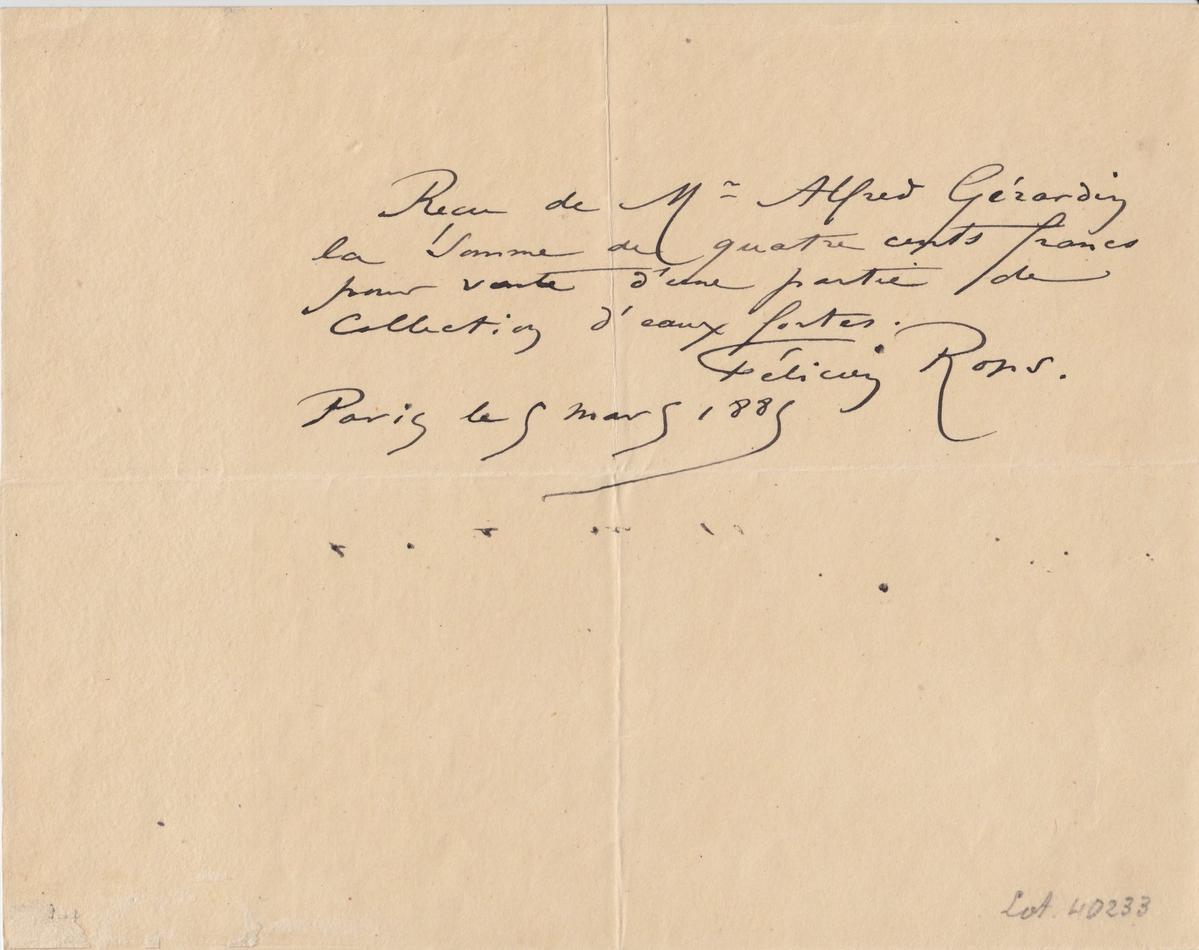 Recu de Mr Alfred Gérardin
la Somme de quatre cents francs
pour vente d'une partie de
Collection d'eaux fortes.
Félicien Rops.
Paris le 5 mars 1885
Lot. 40233